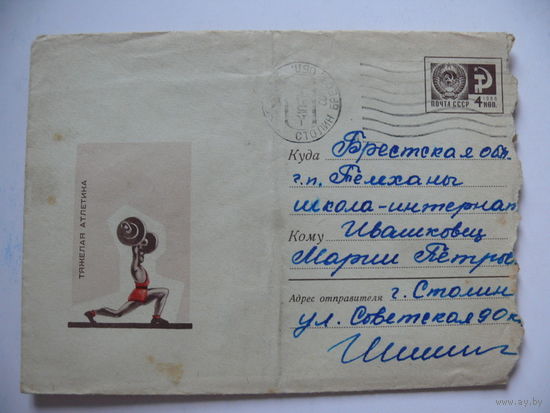 ПОЧТА СССР 1966 4 КОП.
СТОЛИН
Куда Брестская обл.
г.п. Телеханы
школа-интернат
Кому Ивашковец
Марии Петро
Адрес отправителя г. Столин
ул. Советская 90 к
ТЯЖЕЛАЯ АТЛЕТИКА
www.ay.by